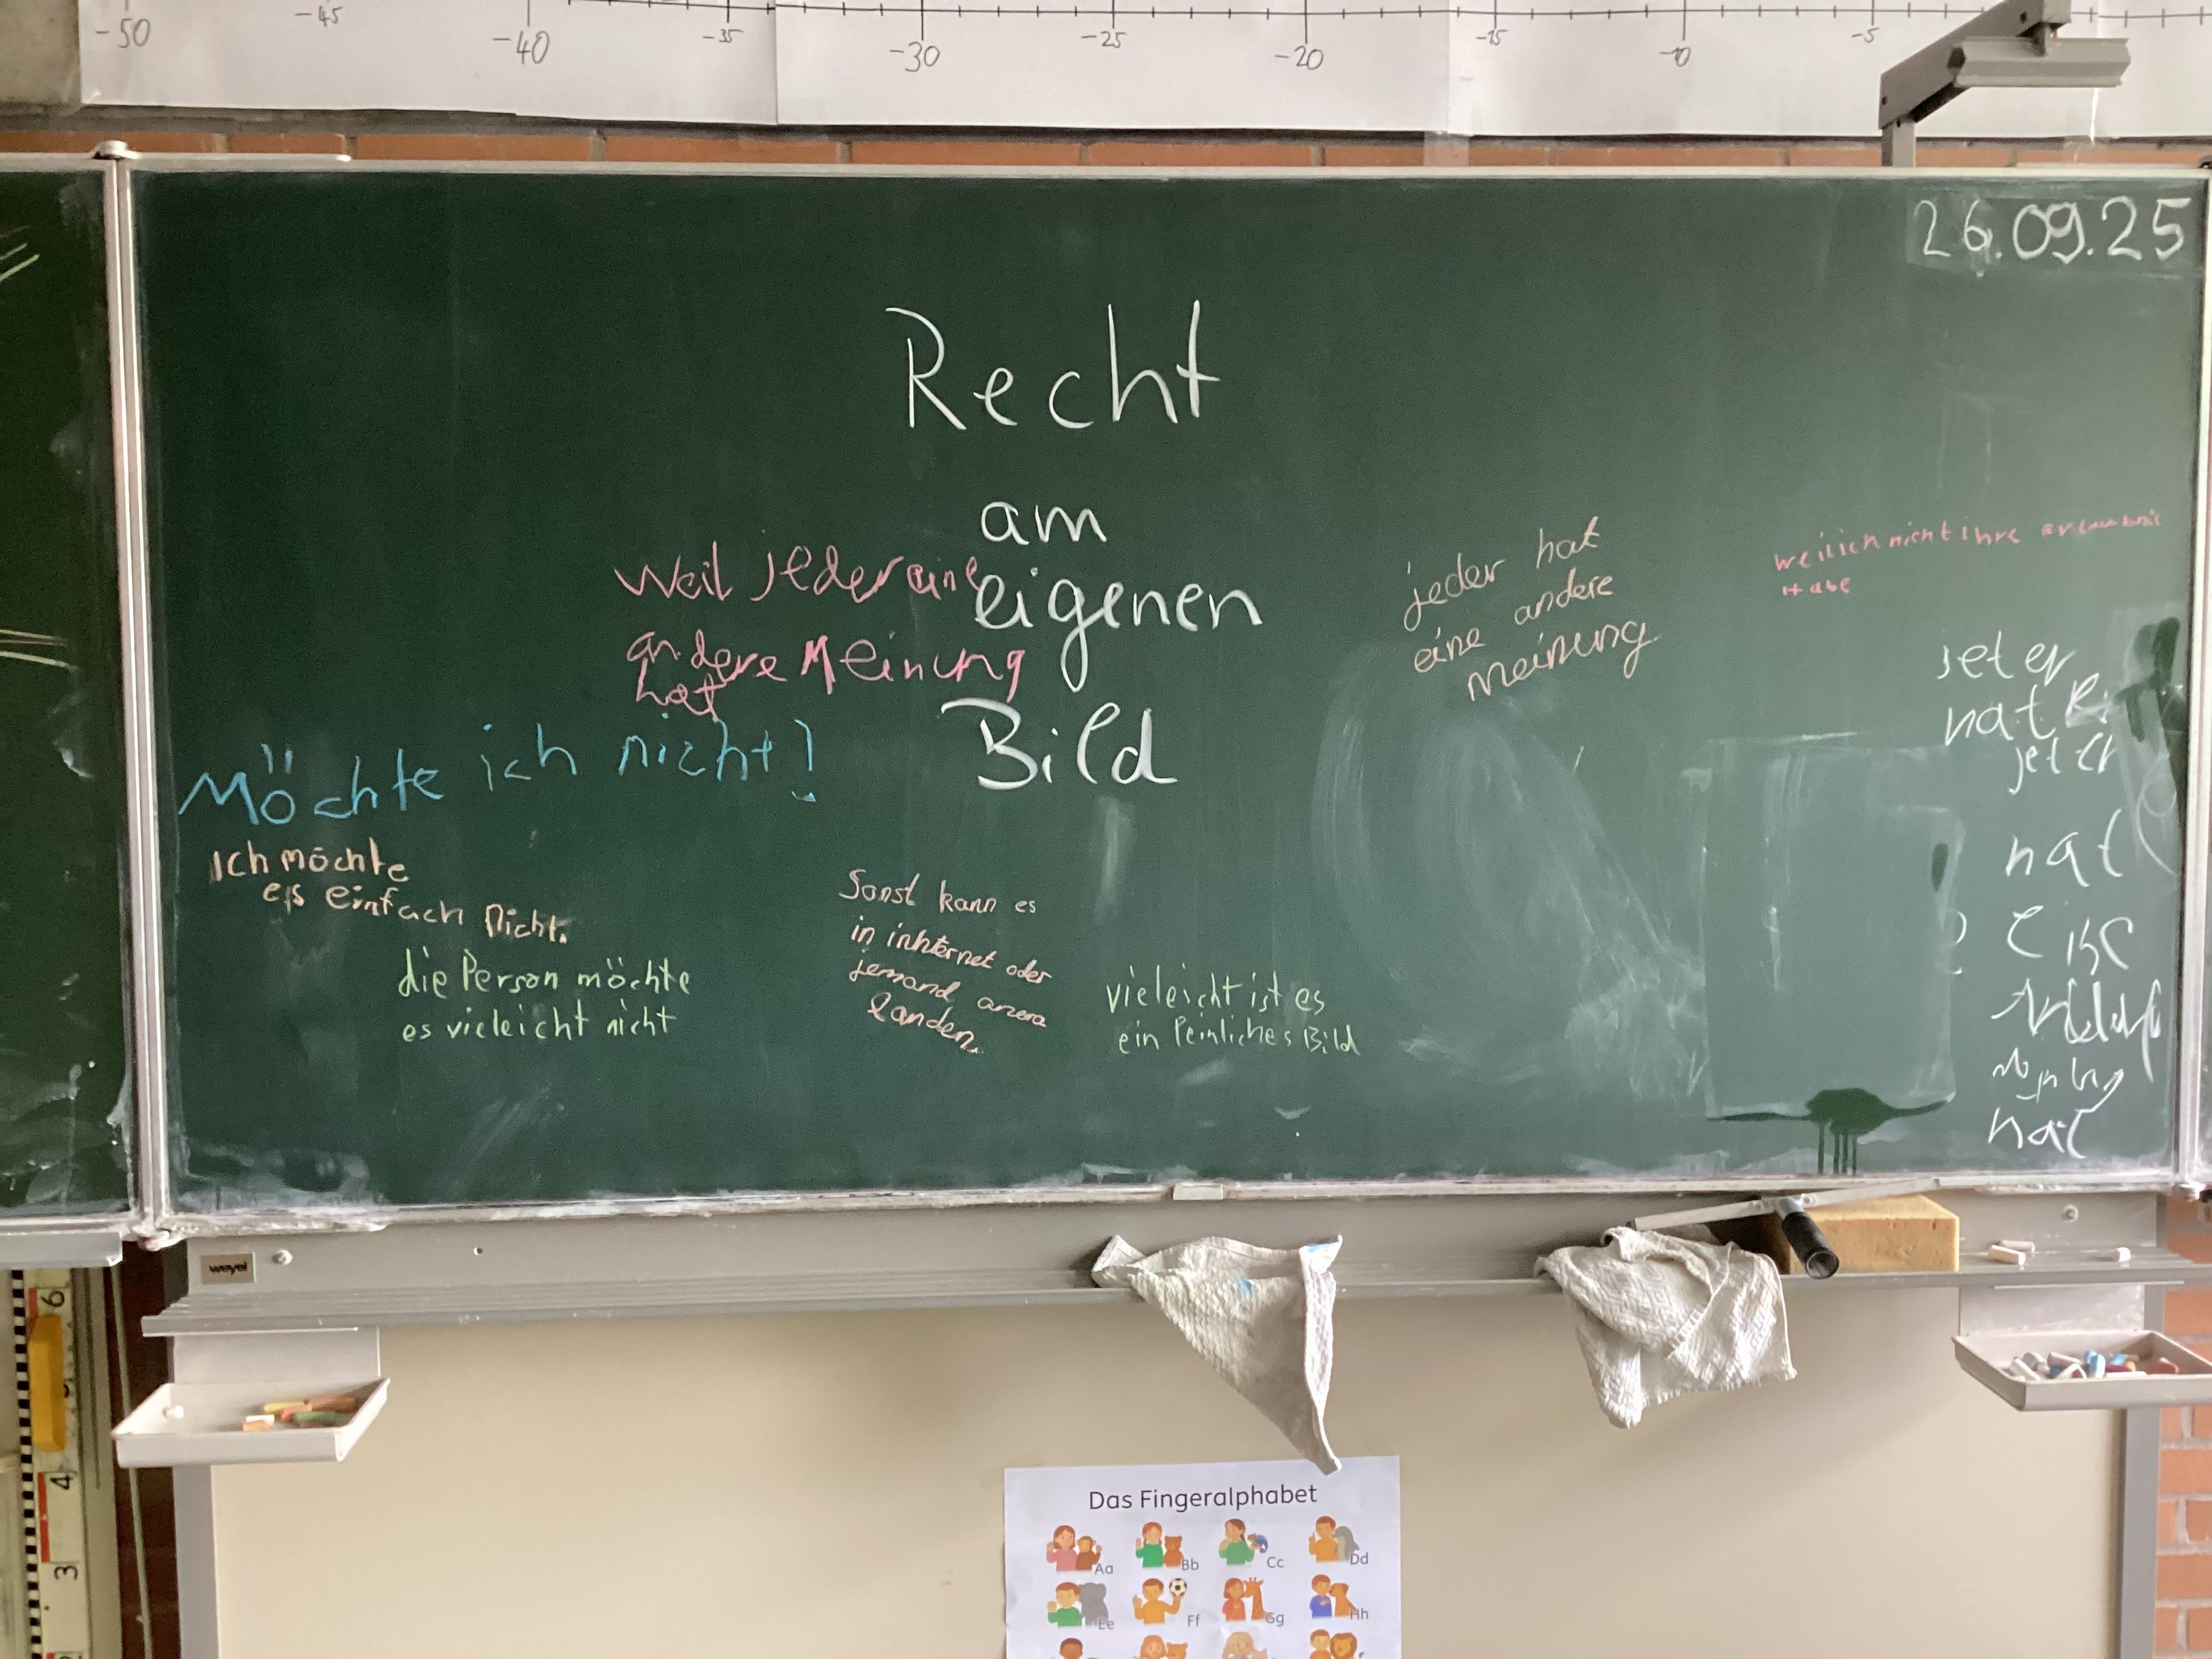 -50 -45 -40 -35 -30 -25 -20 -15 -10 -5
26.09.25
Recht
am
eigenen
Bild
Weil jeder eine
andere Meinung
hat
jeder hat
eine andere
meinung
weil ich nicht Ihre Erlaubnis
Habe
Möchte ich nicht!
Ich möchte
es einfach nicht.
die Person möchte
es vieleicht nicht
Sonst kann es
in inhternet oder
jemand
landen.
vieleicht ist es
ein Peinliches Bild
jeter
hat
jeter
hat
hat
weyel
6
4
3
Das Fingeralphabet
Aa Bb Cc Dd
Ee Ff Gg Hh